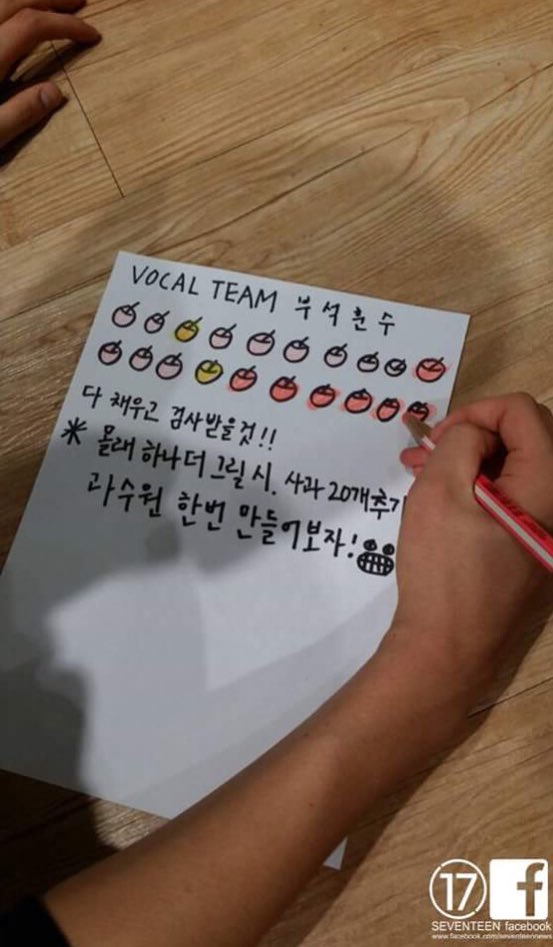 VOCAL TEAM 부석훈수
다 채우고 검사받을것!!
* 몰래 하나 더 그릴 시. 사과 20개 추가
과수원 한번 만들어보자!
17
f
SEVENTEEN facebook
www.facebook.com/seventeennews